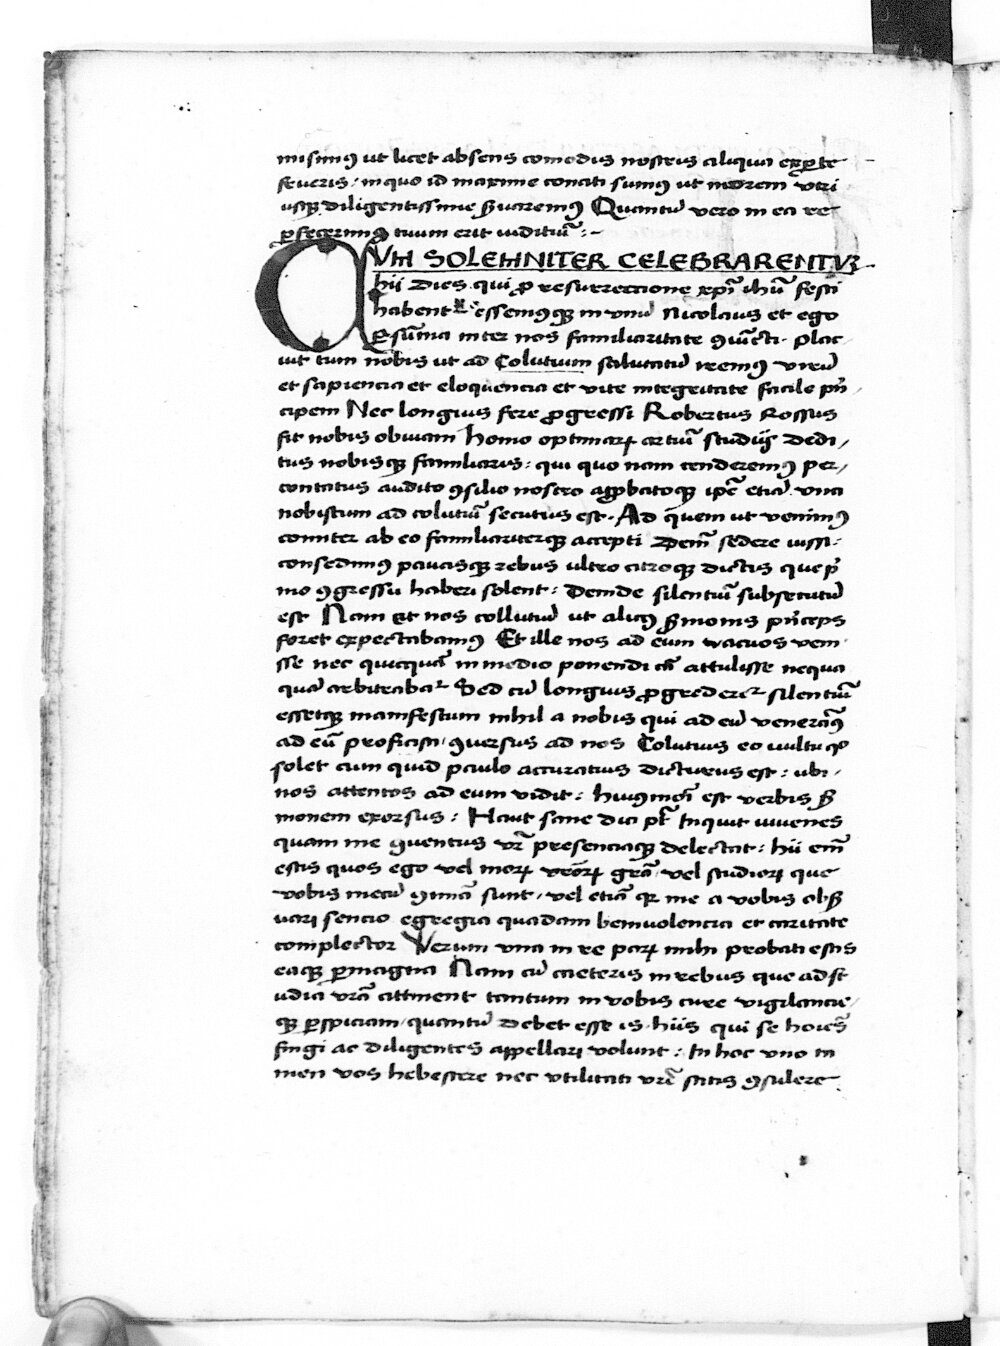 misimꝰ ut licet absens comodis nostris aliqua ex ꝑte
frueris · in quo id maxime conati sumꝰ ut morem vtri
usqꝫ diligentissime ẜuaremꝰ Quantū vero in ea re
ꝑfecerimꝰ tuum erit iuditiū :~
CVM SOLEMNITER CELEBRARENTVR
hii Dies qui ꝓ resurrectione xpī ihū festi
habentʳ essemꝰqꝫ in vnū Nicolaus et ego
ꝑ sūma inter nos familiaritate ꝯiūcti · plac
uit tum nobis ut ad Colutium salutatū iremꝰ virū
et sapiencia et eloquencia et vite integritate facile pñ
cipem Nec longius fere ꝓgressi Robertus Rossus
fit nobis obuiam homo optimaꝝ artiū studiis dedi /
tus nobisqꝫ familiaris : qui quo nam tenderemꝰ per /
contatus audito ꝯsilio nostro aꝓbatoqꝫ ipē etiā vna
nobiscum ad colutiū secutus est · Ad quem ut venimꝰ
comiter ab eo familiariterqꝫ accepti Deīn sedere iussi :
consedimꝰ paucisqꝫ rebus ultro citroqꝫ dictis que pͥ
mo ꝯgressu haberi solent : Deinde silentiū subsecutū
est Nam et nos collutiū ut alicꝰ ẜmonis pñceps
foret expectabamꝰ Et ille nos ad eum vacuos veni
sse nec quicquā in medio ponendi cā attulisse nequa
quā arbitrabaʳ Sed cū longius ꝓgredereʳ silentiū
essetqꝫ manifestum nihil a nobis qui ad eū veneramꝰ
ad eū proficisci / ꝯuersus ad nos Colutius eo uultu qͦ
solet cum quid paulo accuratius dicturus est : ubi /
nos attentos ad eum vidit : huiꝰmōi est verbis ẜ
monem exorsus : Haut sane dici pt̄ Inquit iuuenes
quam me ꝯuentus vr̄ presenciaqꝫ delectat : hii em̄
estis quos ego vel moꝝ vr̄oꝝ grā / vel studioꝝ que
vobis mecū ꝯmūia sunt / vel etiā qꝛ me a vobis obẜ
uari sencio egregia quadam beniuolencia et caritate
complector Verum vna in re paꝝ mihi probati estis
eaqꝫ ꝑmagna Nam cū caeteris in rebus que ad st
udia vr̄a attinent tantum in vobis cure vigilancie /
qꝫ ꝑspiciam / quantū debet esse is · hiis qui se hoīes
frugi ac diligentes appellari volunt : In hoc vno ta
men vos hebescere nec vtilitati vr̄e satis ꝯsulere